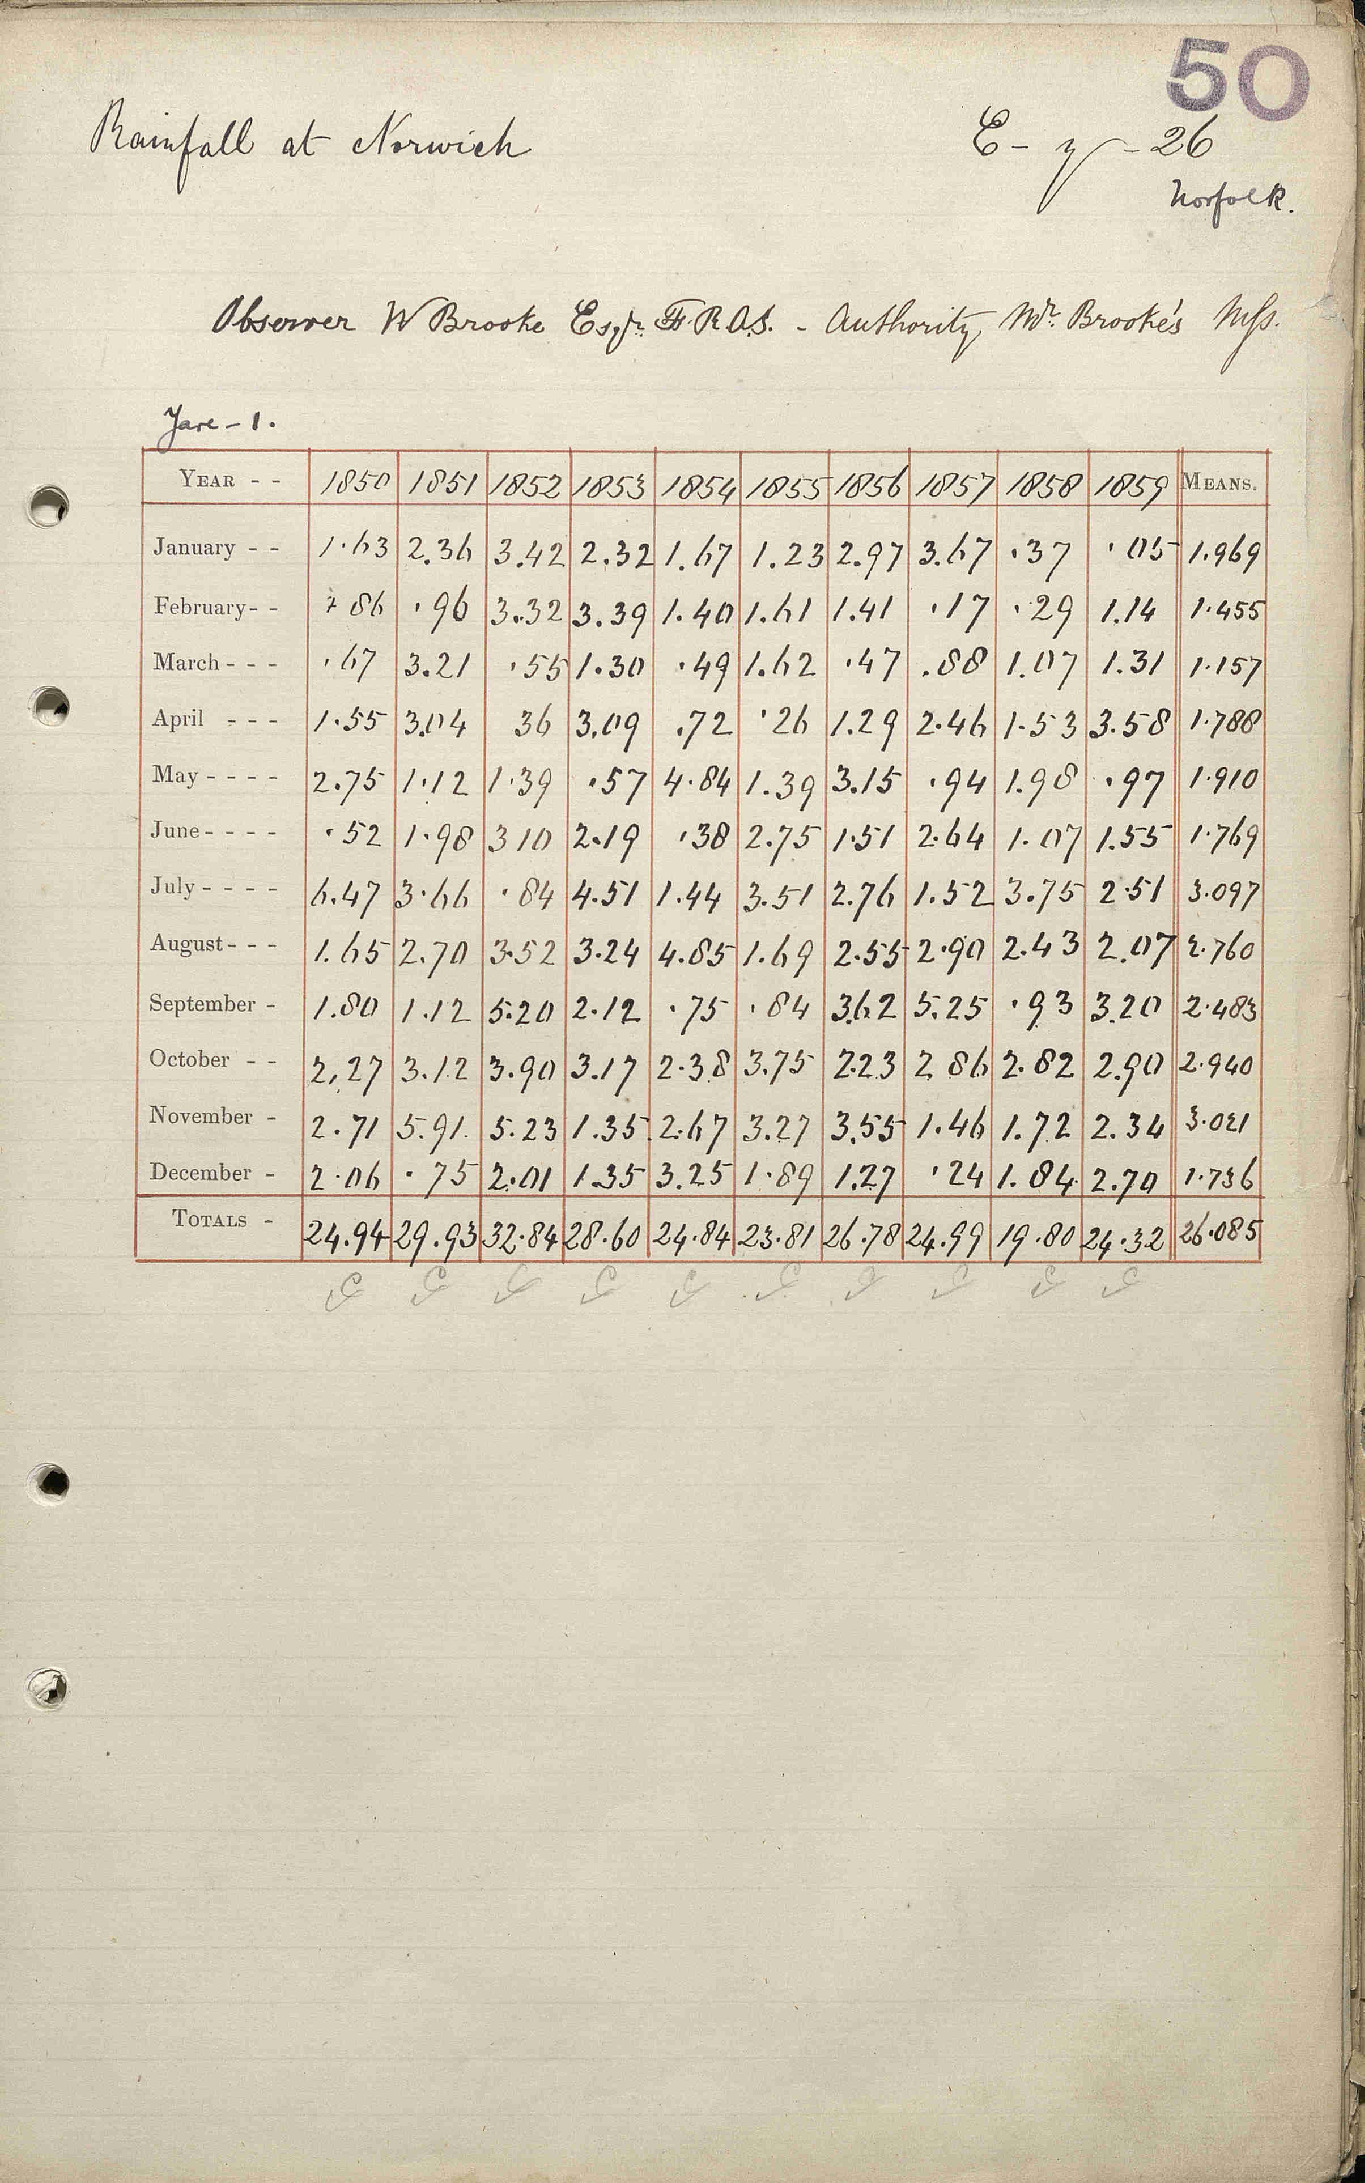 50
Rainfall at Norwich E - y - 26
Norfolk.
Observer W Brooke Esqr. F.R.A.S. - Authority Mr. Brooke's Mss.
Yare - 1.
YEAR - - 1850 1851 1852 1853 1854 1855 1856 1857 1858 1859 MEANS.
January - - 1.63 2.36 3.42 2.32 1.67 1.23 2.97 3.67 .37 .05 1.969
February - - .86 .96 3.32 3.39 1.40 1.61 1.41 .17 .29 1.14 1.455
March - - - .67 3.21 .55 1.30 .49 1.62 .47 .88 1.07 1.31 1.157
April - - - 1.55 3.04 36 3.09 .72 .26 1.29 2.46 1.53 3.58 1.788
May - - - - 2.75 1.12 1.39 .57 4.84 1.39 3.15 .94 1.98 .97 1.910
June - - - - .52 1.98 3 10 2.19 .38 2.75 1.51 2.64 1.07 1.55 1.769
July - - - - 6.47 3.66 .84 4.51 1.44 3.51 2.76 1.52 3.75 2.51 3.097
August - - - 1.65 2.70 3.52 3.24 4.85 1.69 2.55 2.90 2.43 2.07 2.760
September - 1.80 1.12 5.20 2.12 .75 .84 3.62 5.25 .93 3.20 2.483
October - - 2.27 3.12 3.90 3.17 2.38 3.75 2.23 2 86 2.82 2.90 2.940
November - 2.71 5.91 5.23 1.35 2.67 3.27 3.55 1.46 1.72 2.34 3.021
December - 2.06 .75 2.01 1.35 3.25 1.89 1.27 .24 1.84 2.70 1.736
TOTALS - 24.94 29.93 32.84 28.60 24.84 23.81 26.78 24.99 19.80 24.32 26.085